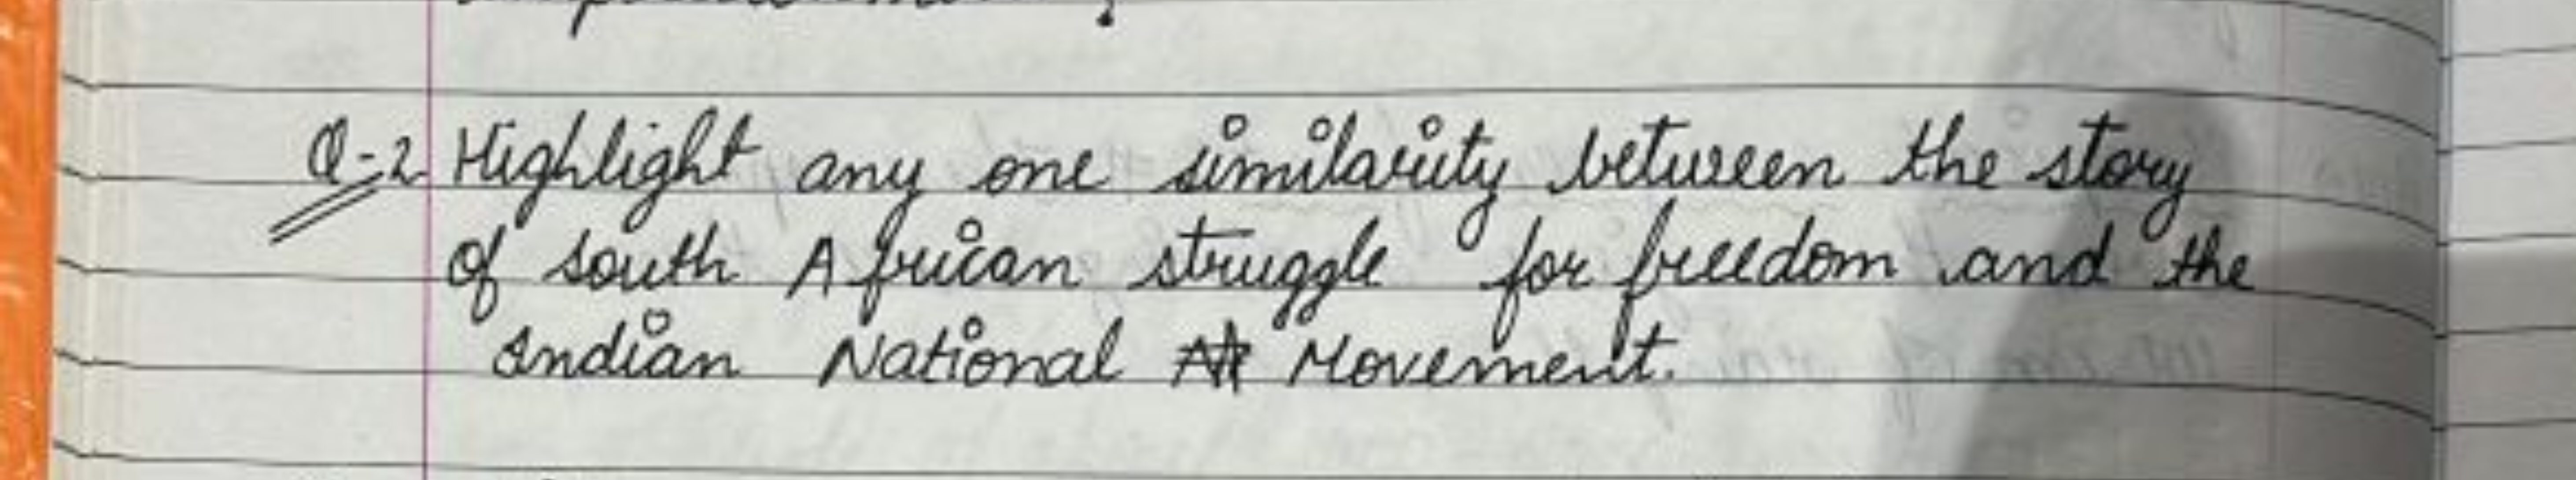 Q-2 Highlight any one similarity between the story
of south African struggle for freedom and the
Indian National Movement.